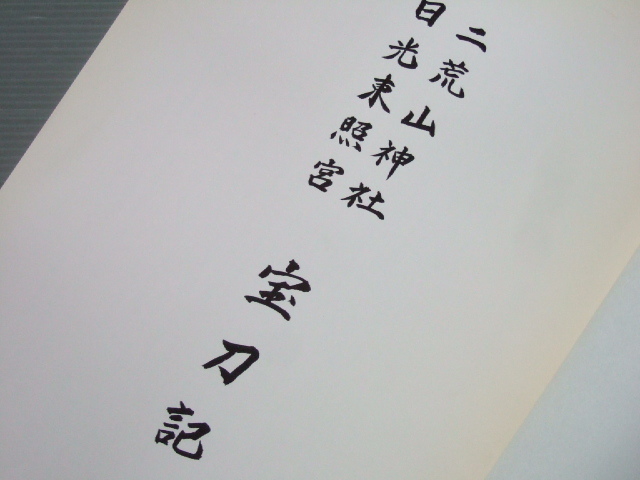 二荒山神社
日光東照宮
宝刀記